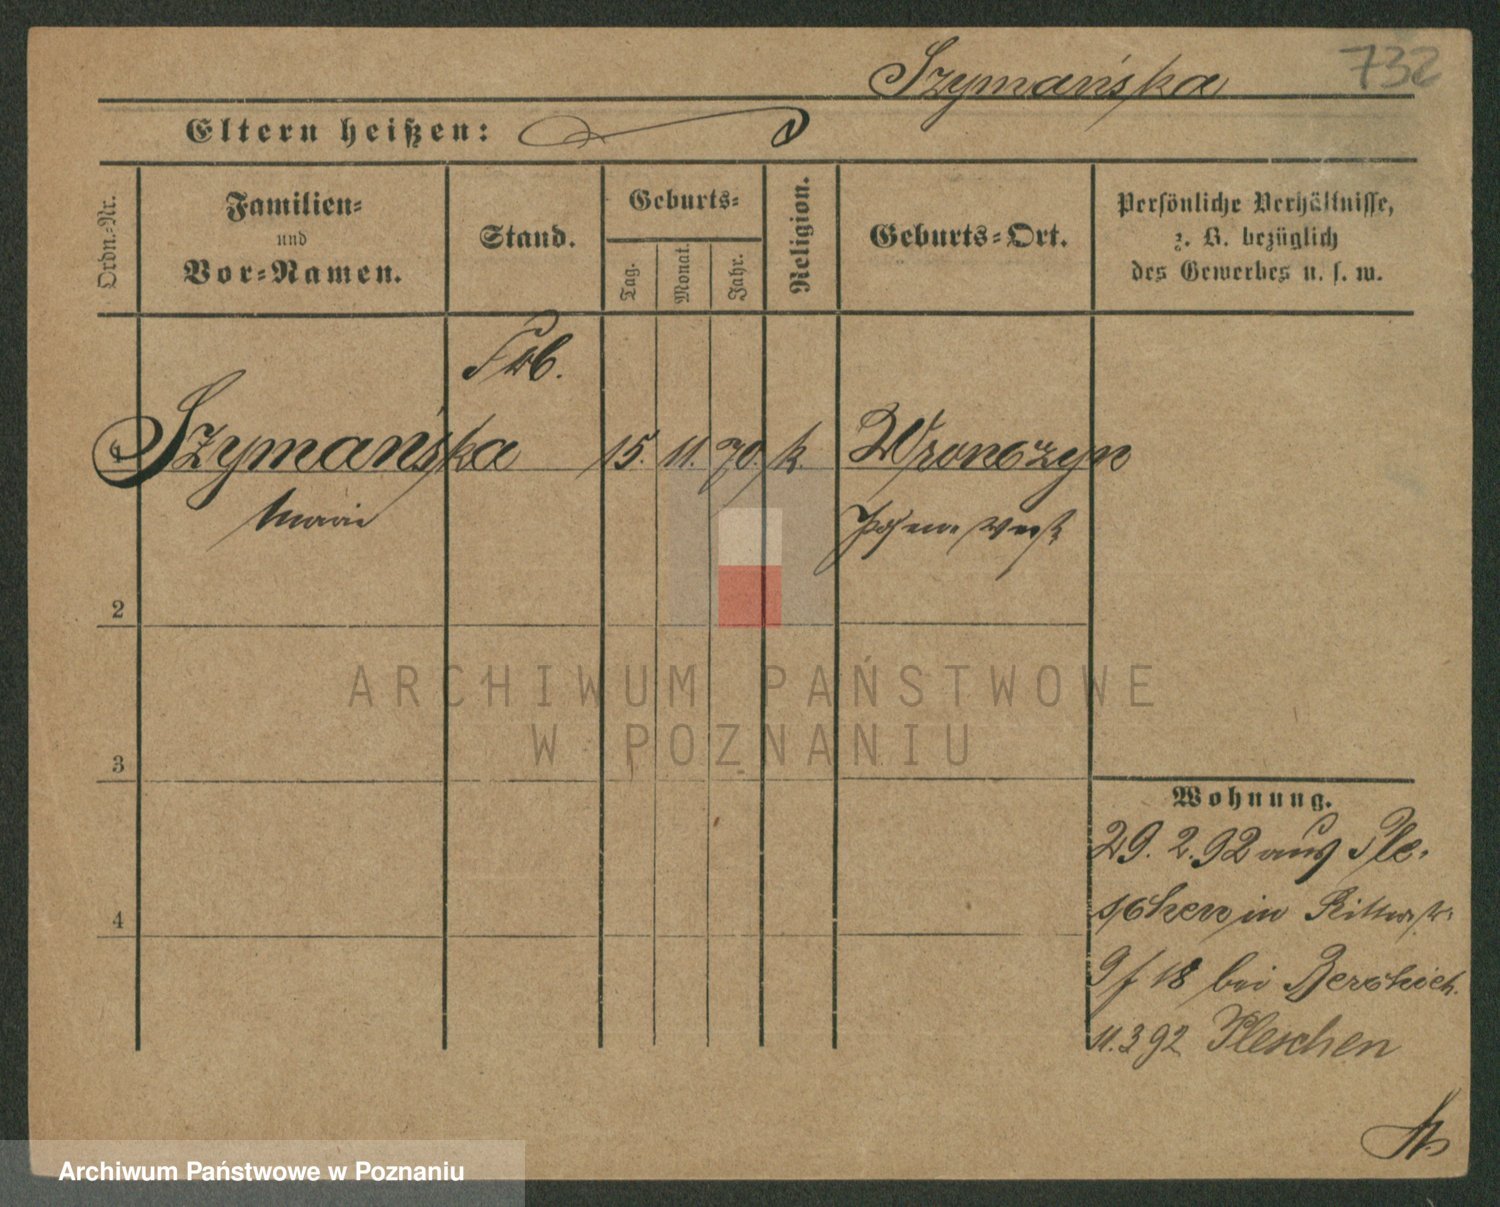 Szymańska 732
Eltern heißen:
Ordn.-Nr.
Familien-
und
Vor-Namen.
Stand.
Geburts-
Tag.
Monat.
Jahr.
Religion.
Geburts-Ort.
Persönliche Verhältnisse,
z. B. bezüglich
des Gewerbes u. s. w.
1 Szymańska 15. 11. 70. k. Wronczyn
Marie Posen West
2
3
4
Wohnung.
29. 2. 92 aus Ple-
schen in Ritterstr.
9/18 bei
11.3.92 Pleschen
ARCHIWUM PAŃSTWOWE
W POZNANIU
Archiwum Państwowe w Poznaniu